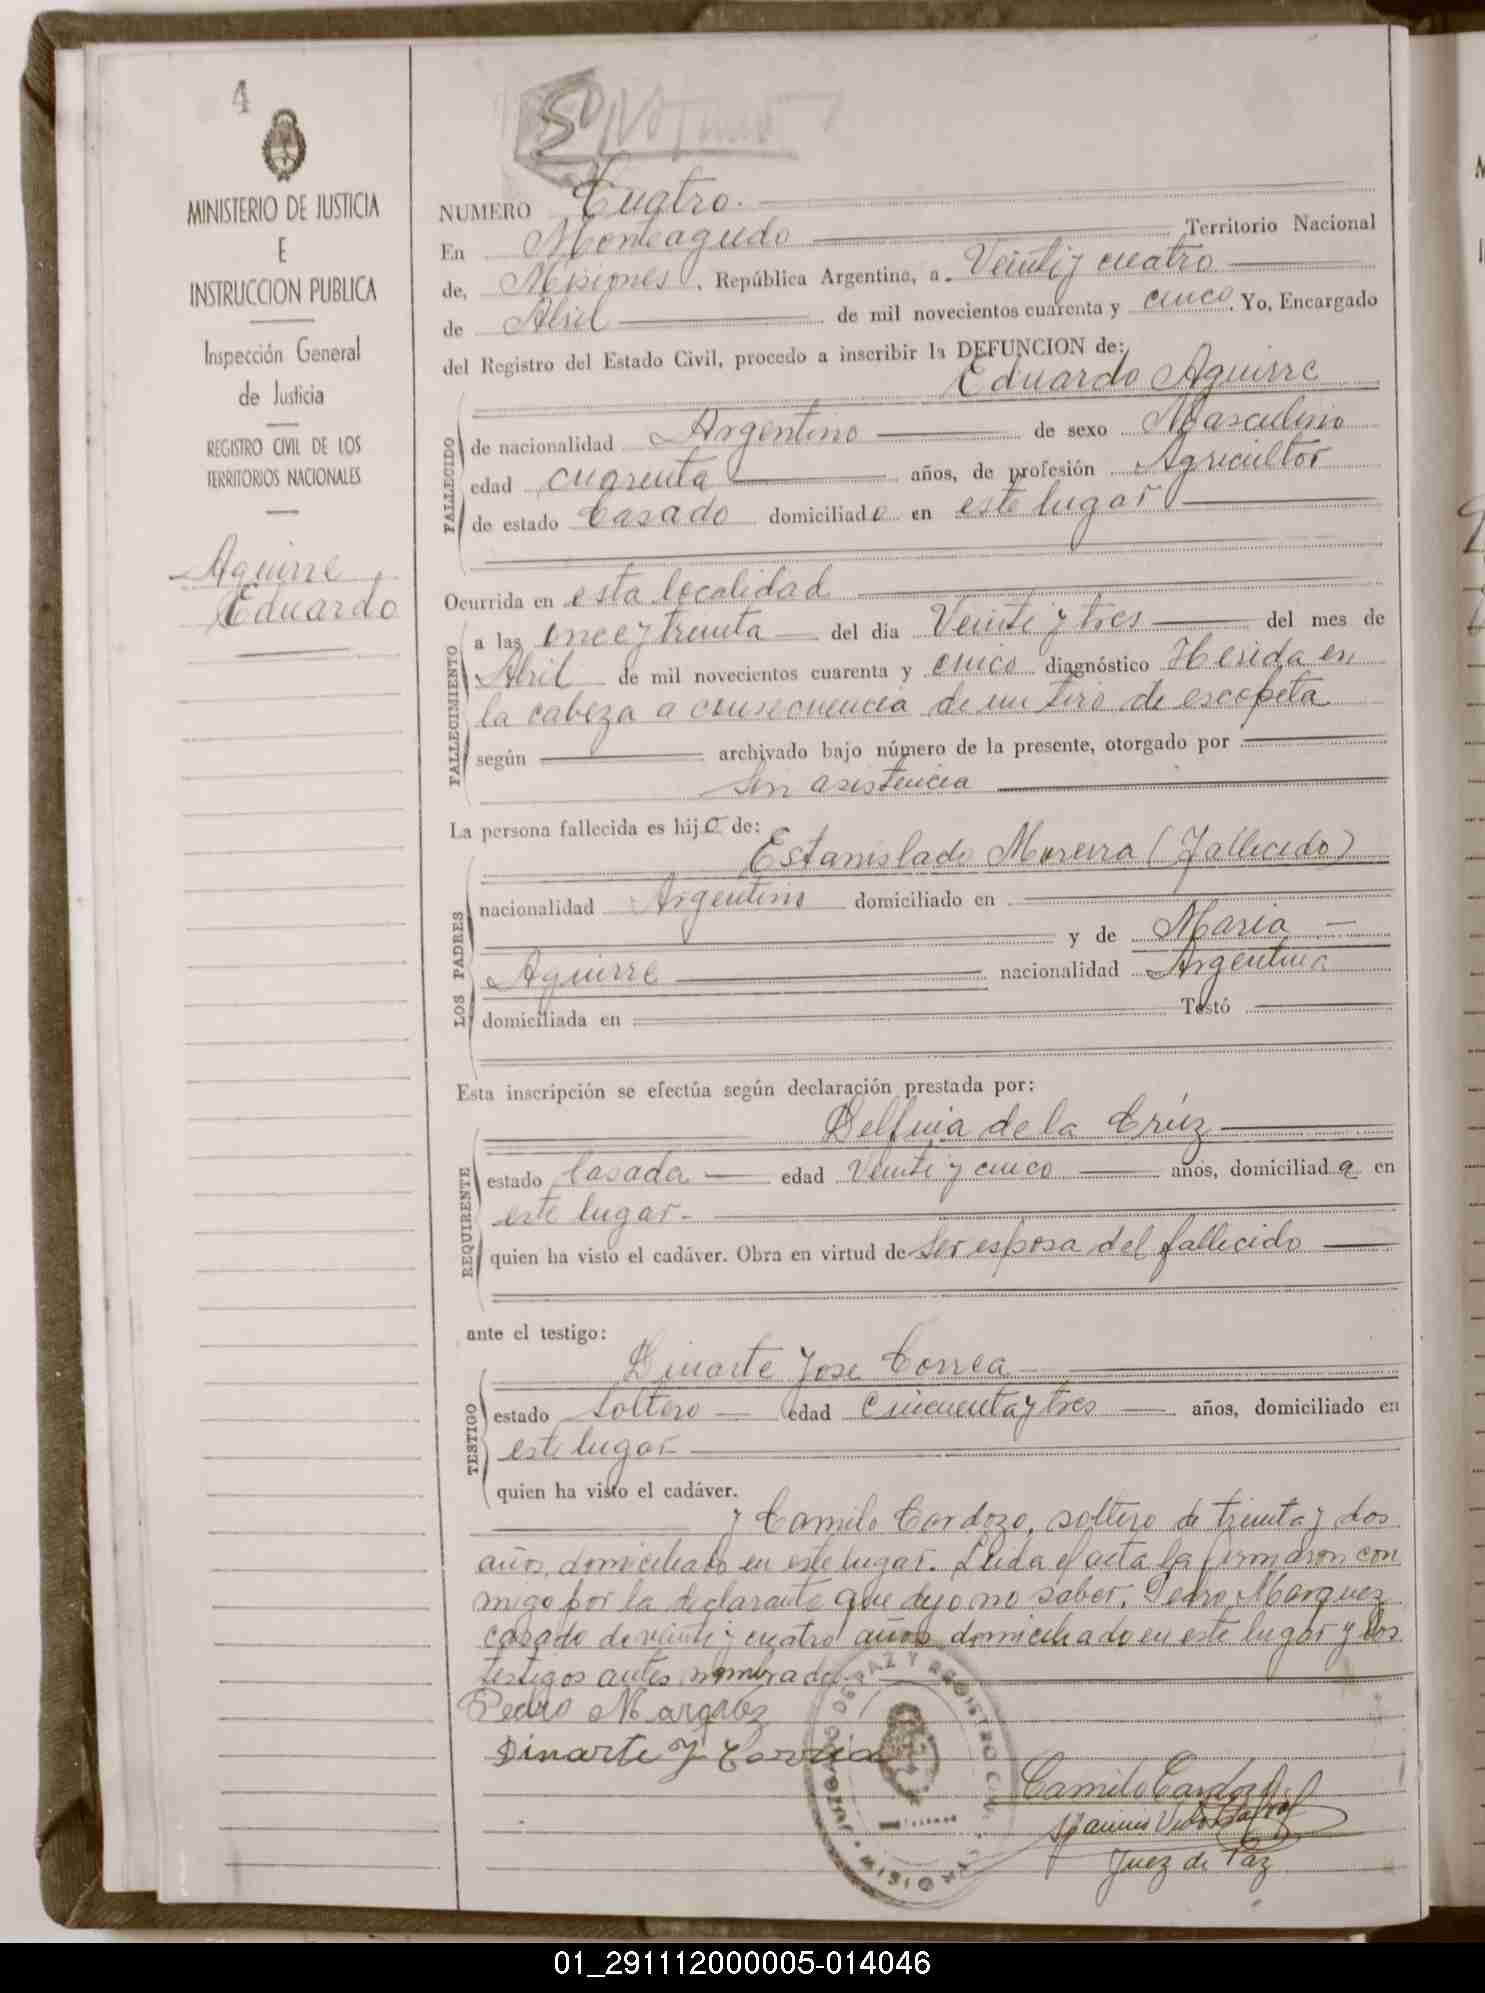 4
MINISTERIO DE JUSTICIA
E
INSTRUCCION PUBLICA
Inspección General
de Justicia
REGISTRO CIVIL DE LOS
TERRITORIOS NACIONALES
Aguirre
Eduardo
NUMERO Cuatro.
En Monteagudo Territorio Nacional
de, Misiones, República Argentina, a Veinti y cuatro
de Abril de mil novecientos cuarenta y cinco. Yo, Encargado
del Registro del Estado Civil, procedo a inscribir la DEFUNCION de:
Eduardo Aguirre
FALLECIDO
de nacionalidad Argentino de sexo Masculino
edad cuarenta años, de profesión Agricultor
de estado Casado domiciliado en este lugar
Ocurrida en esta localidad
FALLECIMIENTO
a las once y treinta del día Veinte y tres del mes de
Abril de mil novecientos cuarenta y cinco diagnóstico Herida en
la cabeza a consecuencia de un tiro de escopeta
según archivado bajo número de la presente, otorgado por
sin asistencia
La persona fallecida es hijo de:
LOS PADRES
Estanislado Moreira (Fallecido)
nacionalidad Argentino domiciliado en
y de Maria
Aguirre nacionalidad Argentina
domiciliada en Testó
Esta inscripción se efectúa según declaración prestada por:
REQUIRENTE
Delfina de la Crúz
estado Casada edad Veinte y cinco años, domiciliada en
este lugar.
quien ha visto el cadáver. Obra en virtud de ser esposa del fallecido
ante el testigo:
TESTIGO
Dinarte Jose Correa
estado Soltero edad Cincuenta y tres años, domiciliado en
este lugar
quien ha visto el cadáver.
y Camilo Cardozo, soltero de treinta y dos
años, domiciliado en este lugar. Leida el acta la firmaron con
migo por la declarante que dijo no saber, Pedro Marquez
casado de veinte y cuatro años domiciliado en este lugar y los
testigos antes nombrados
Pedro Marquez
Dinarte J Correa
Camilo Cardozo
Juez de Paz
JUZGADO DE PAZ Y REGISTRO CIVIL
01_291112000005-014046